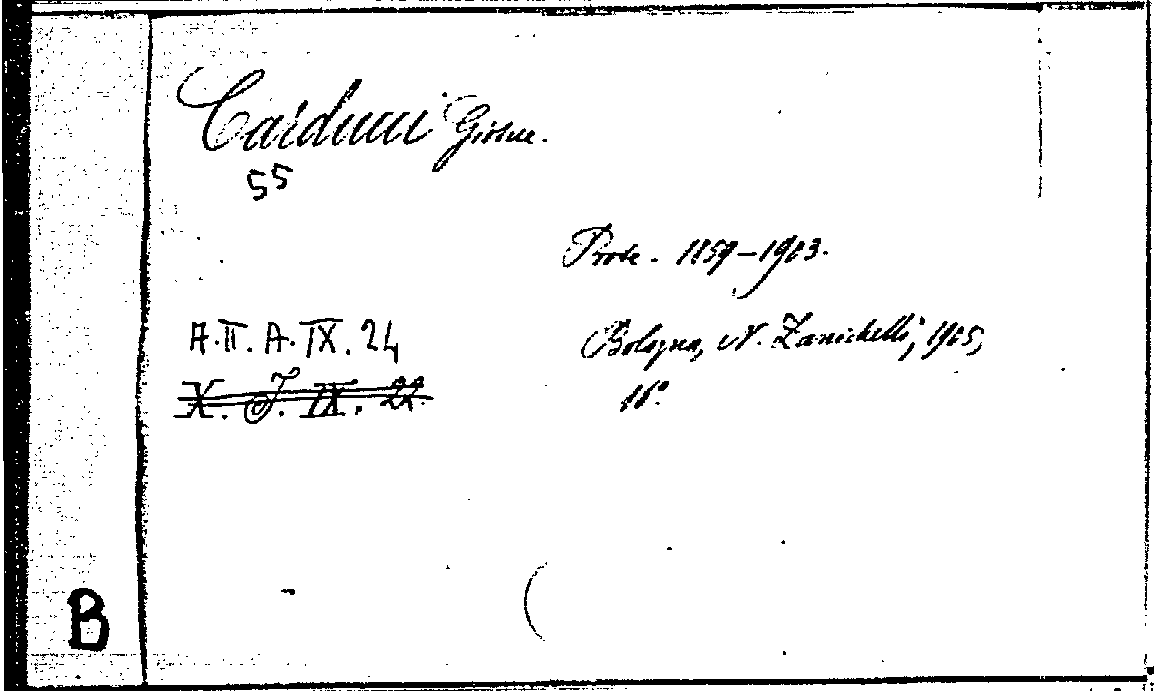 Carducci Giosue.
55
Prose. 1859-1903.
A.II. A.IX. 24
Bologna, N. Zanichelli, 1905,
X. J. IX. 22.
16°
B